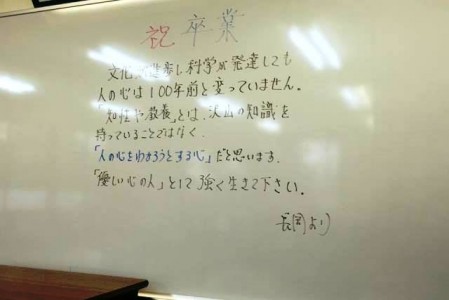 祝 卒業
文化が進歩し科学が発達しても
人の心は100年前と変っていません。
「知性や教養」とは、沢山の知識を
持っていることではなく、
「人の心をわかろうとする心」だと思います。
「優しい心の人」として強く生きて下さい。
長岡より